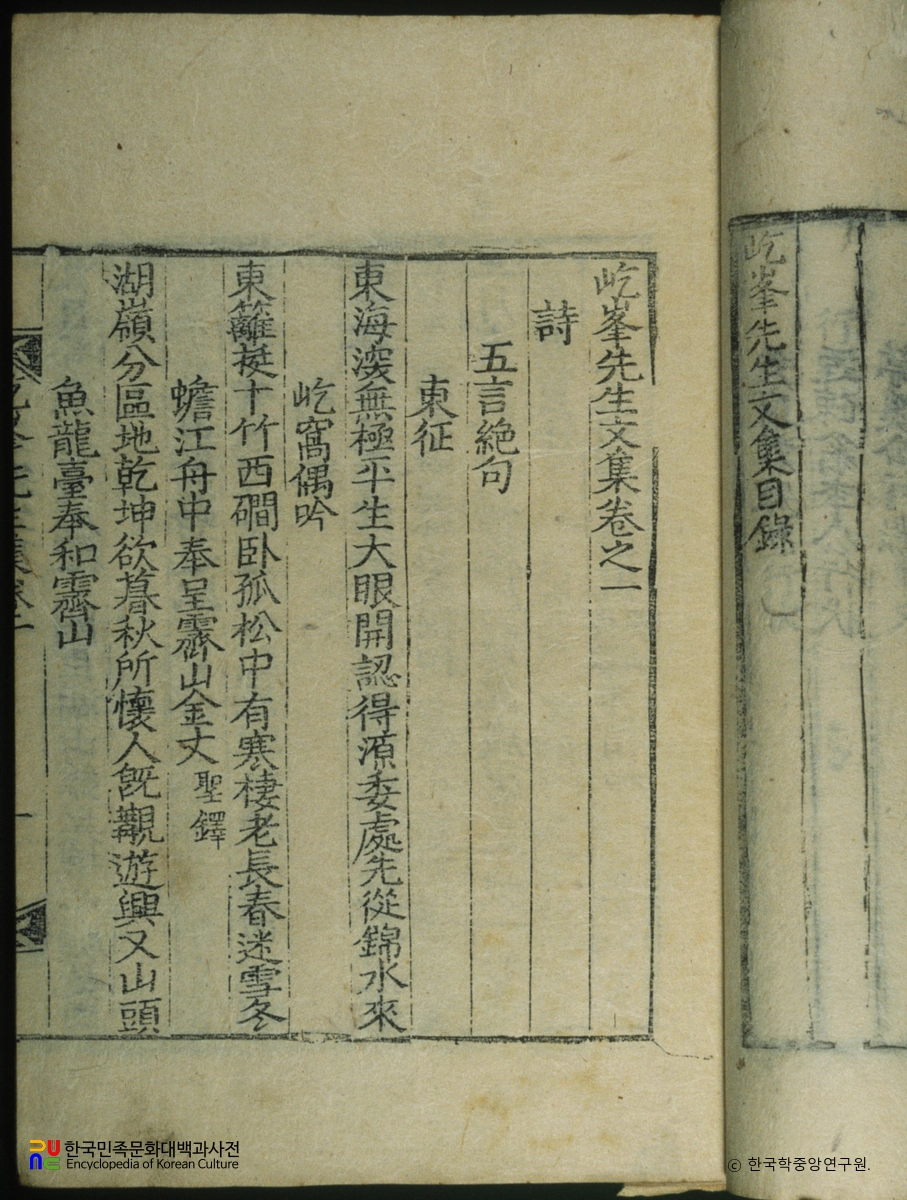 屹峯先生文集目錄
屹峯先生文集卷之一
詩
五言絶句
東征
東海深無極平生大眼開認得源委處先從錦水來
屹窩偶吟
東籬挺十竹西磵卧孤松中有寒棲老長春迷雪冬
蟾江舟中奉呈霽山金丈 聖鐸
湖嶺分區地乾坤欲暮秋所懷人旣覯遊興又山頭
魚龍臺奉和霽山
한국민족문화대백과사전
Encyclopedia of Korean Culture
© 한국학중앙연구원.